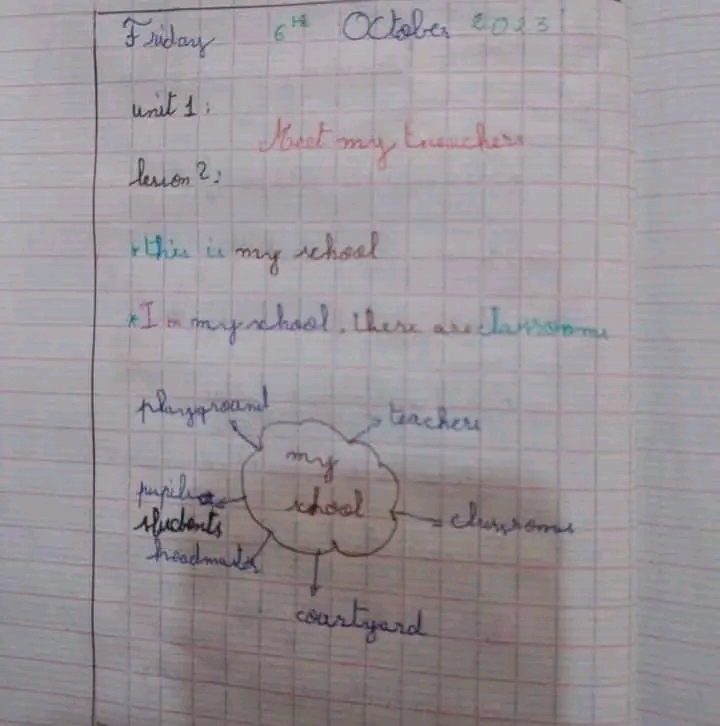 Friday 6TH October 2023
unit 1:
Meet my treachers
lesson 2:
*this is my school
*In my school, there are classrooms
playground
teachers
my
school
pupils
students
classromes
headmaster
courtyard